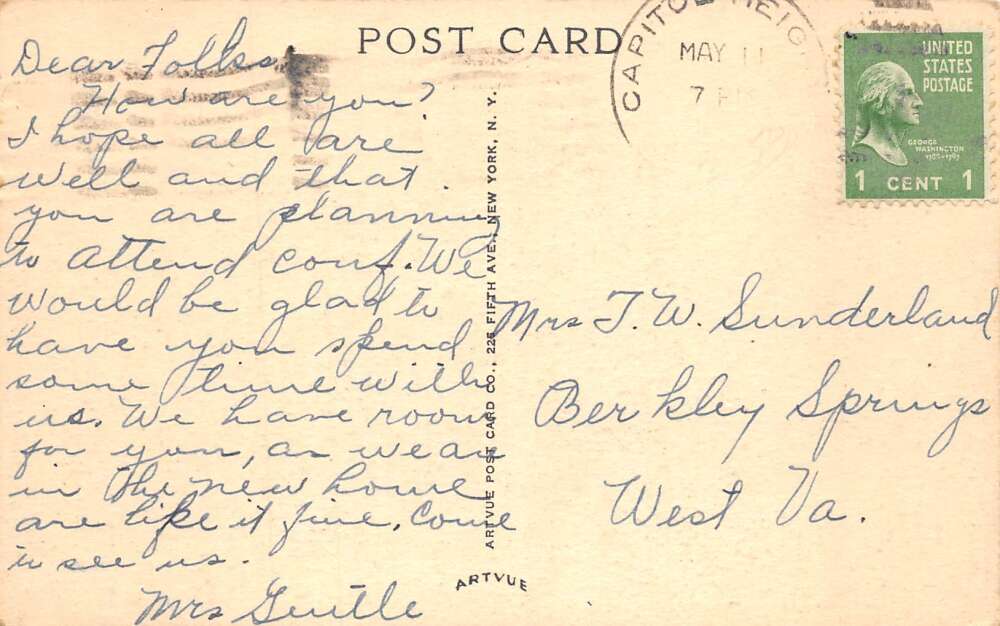 POST CARD
Dear Folks,
How are you?
I hope all are
well and that
you are planning
to attend conf. We
would be glad to
have you spend
some time with
us. We have room
for you, as we are
in the new home
are like it fine. Come
to see us.
Mrs Gentle
ARTVUE POST CARD CO., 225 FIFTH AVE., NEW YORK, N. Y.
ARTVUE
CAPITOL HEIG
MAY 11
7 PM
UNITED
STATES
POSTAGE
GEORGE
WASHINGTON
1789-1797
1 CENT 1
Mrs T. W. Sunderland
Berkley Springs
West Va.